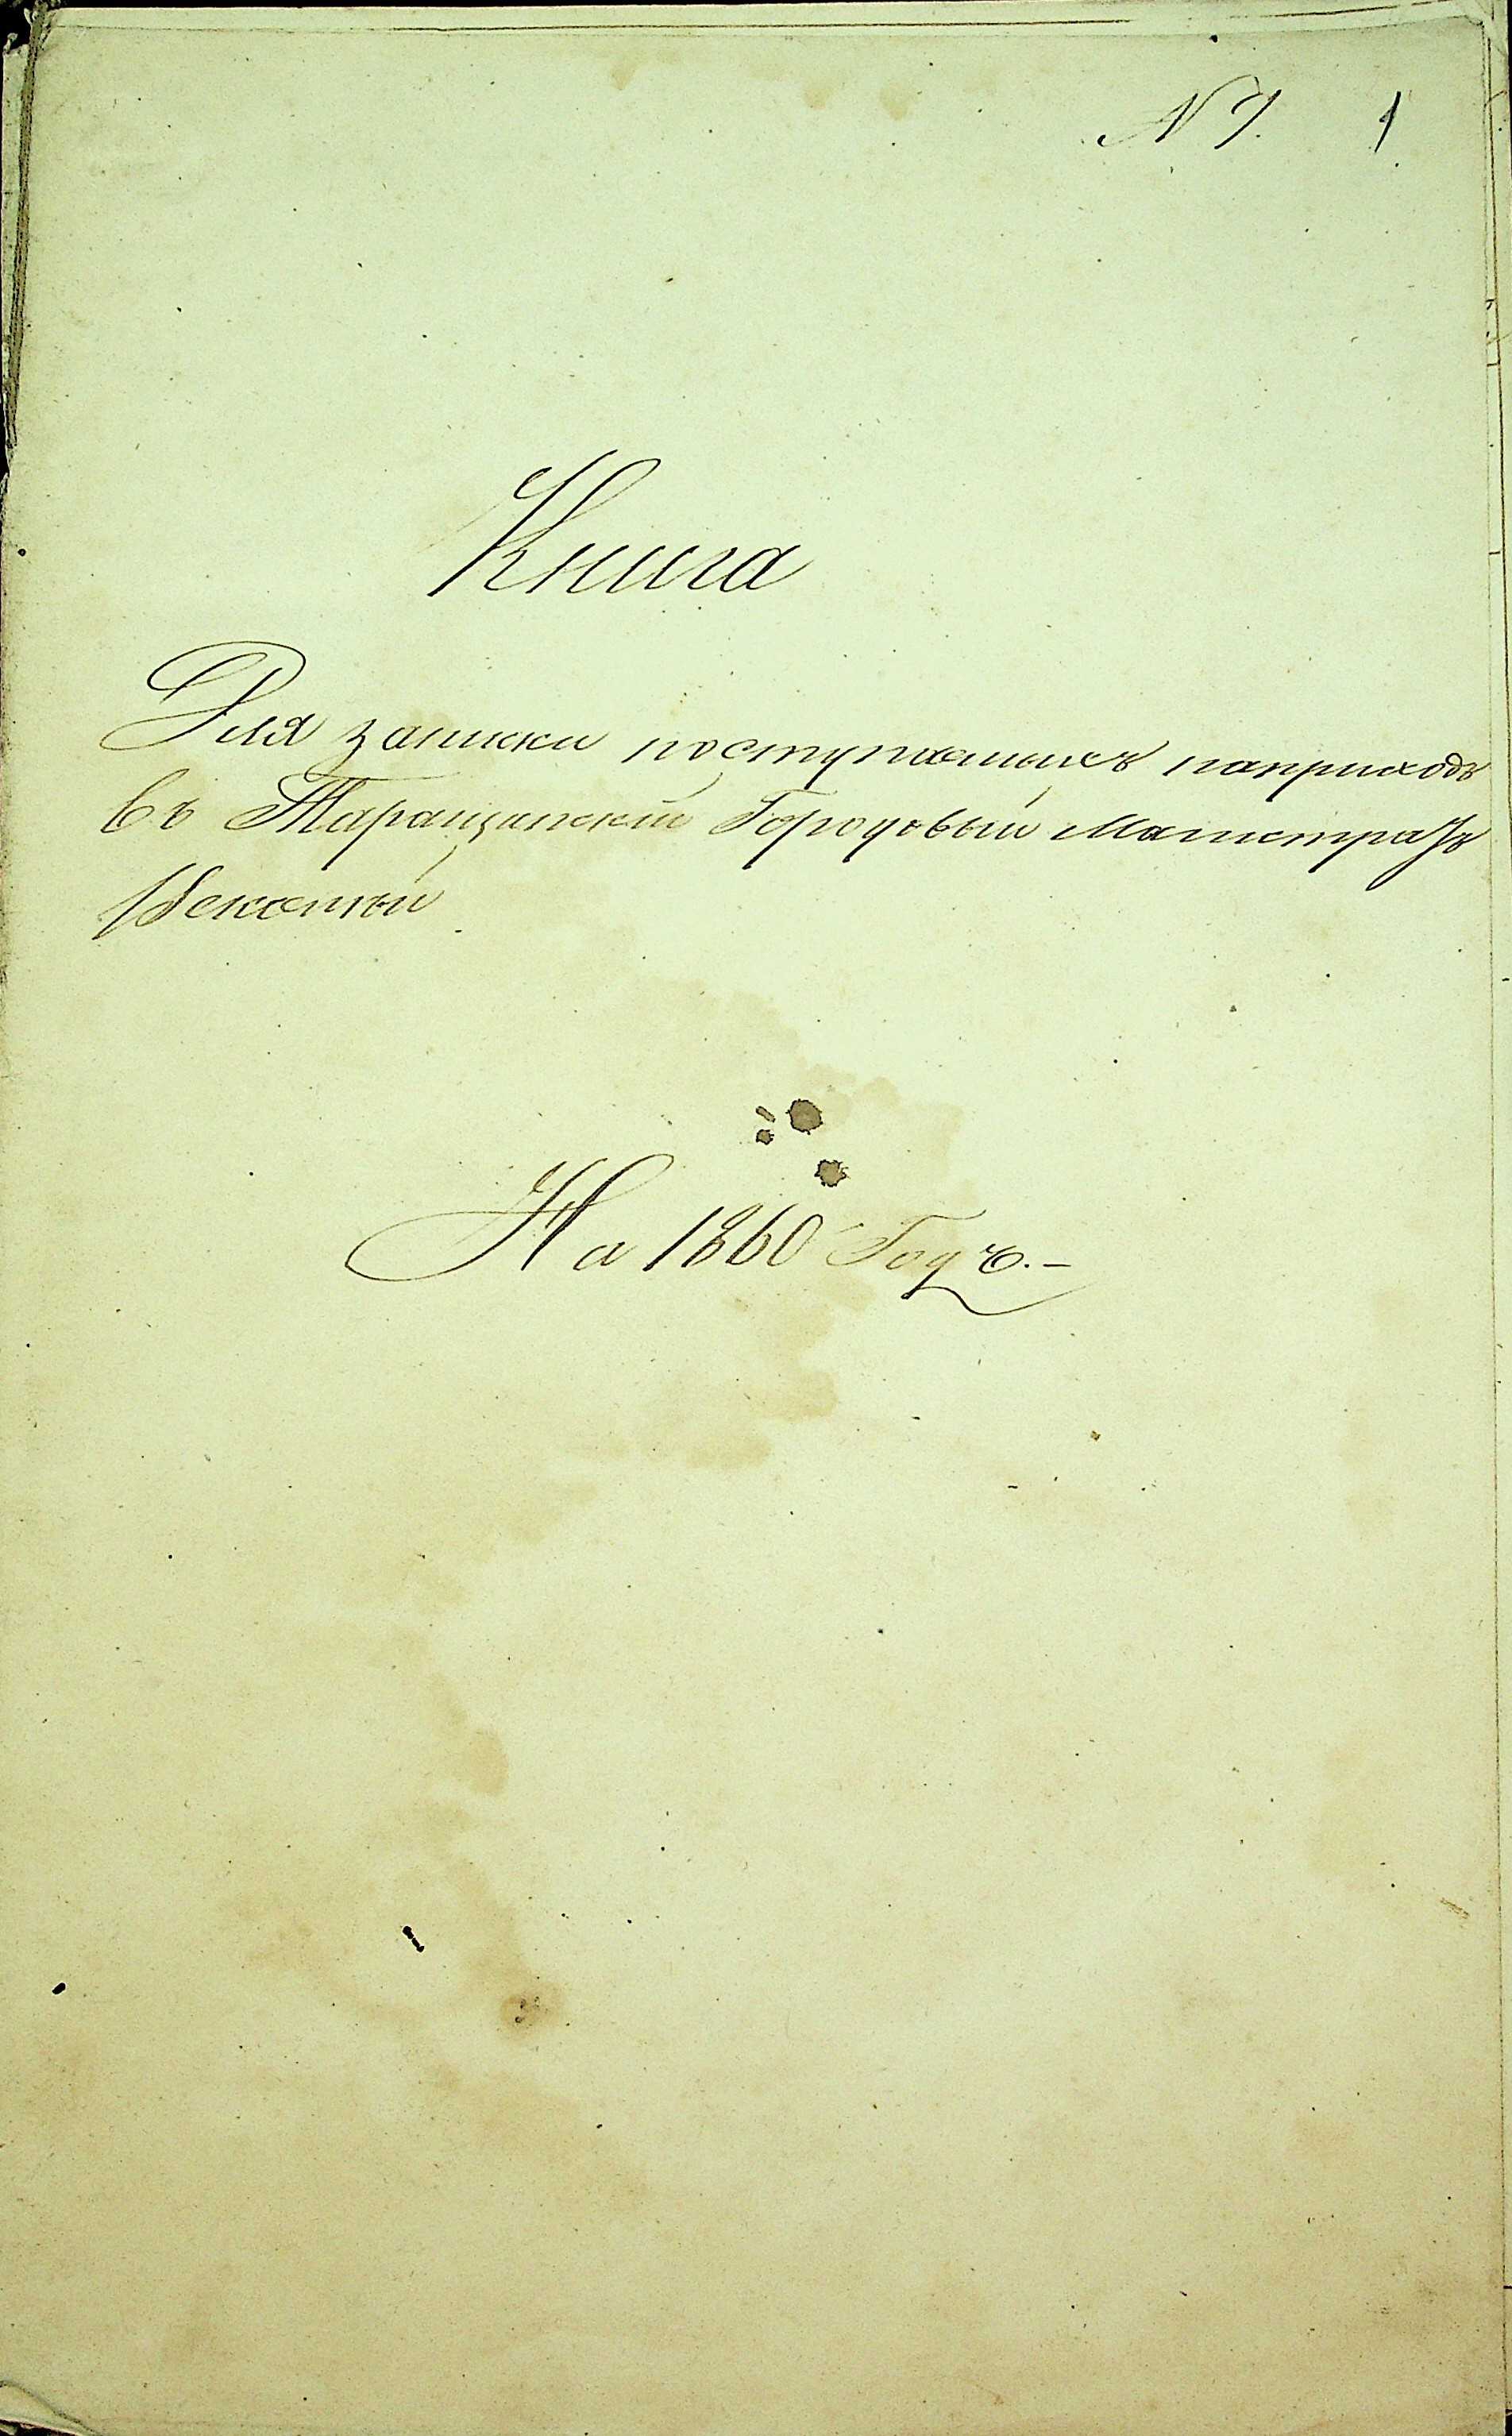 N 1. 1
Книга
Для записки поступаемыхъ наприходъ
въ Таращанскій Городовый Магистратъ
На 1860 Годъ.-